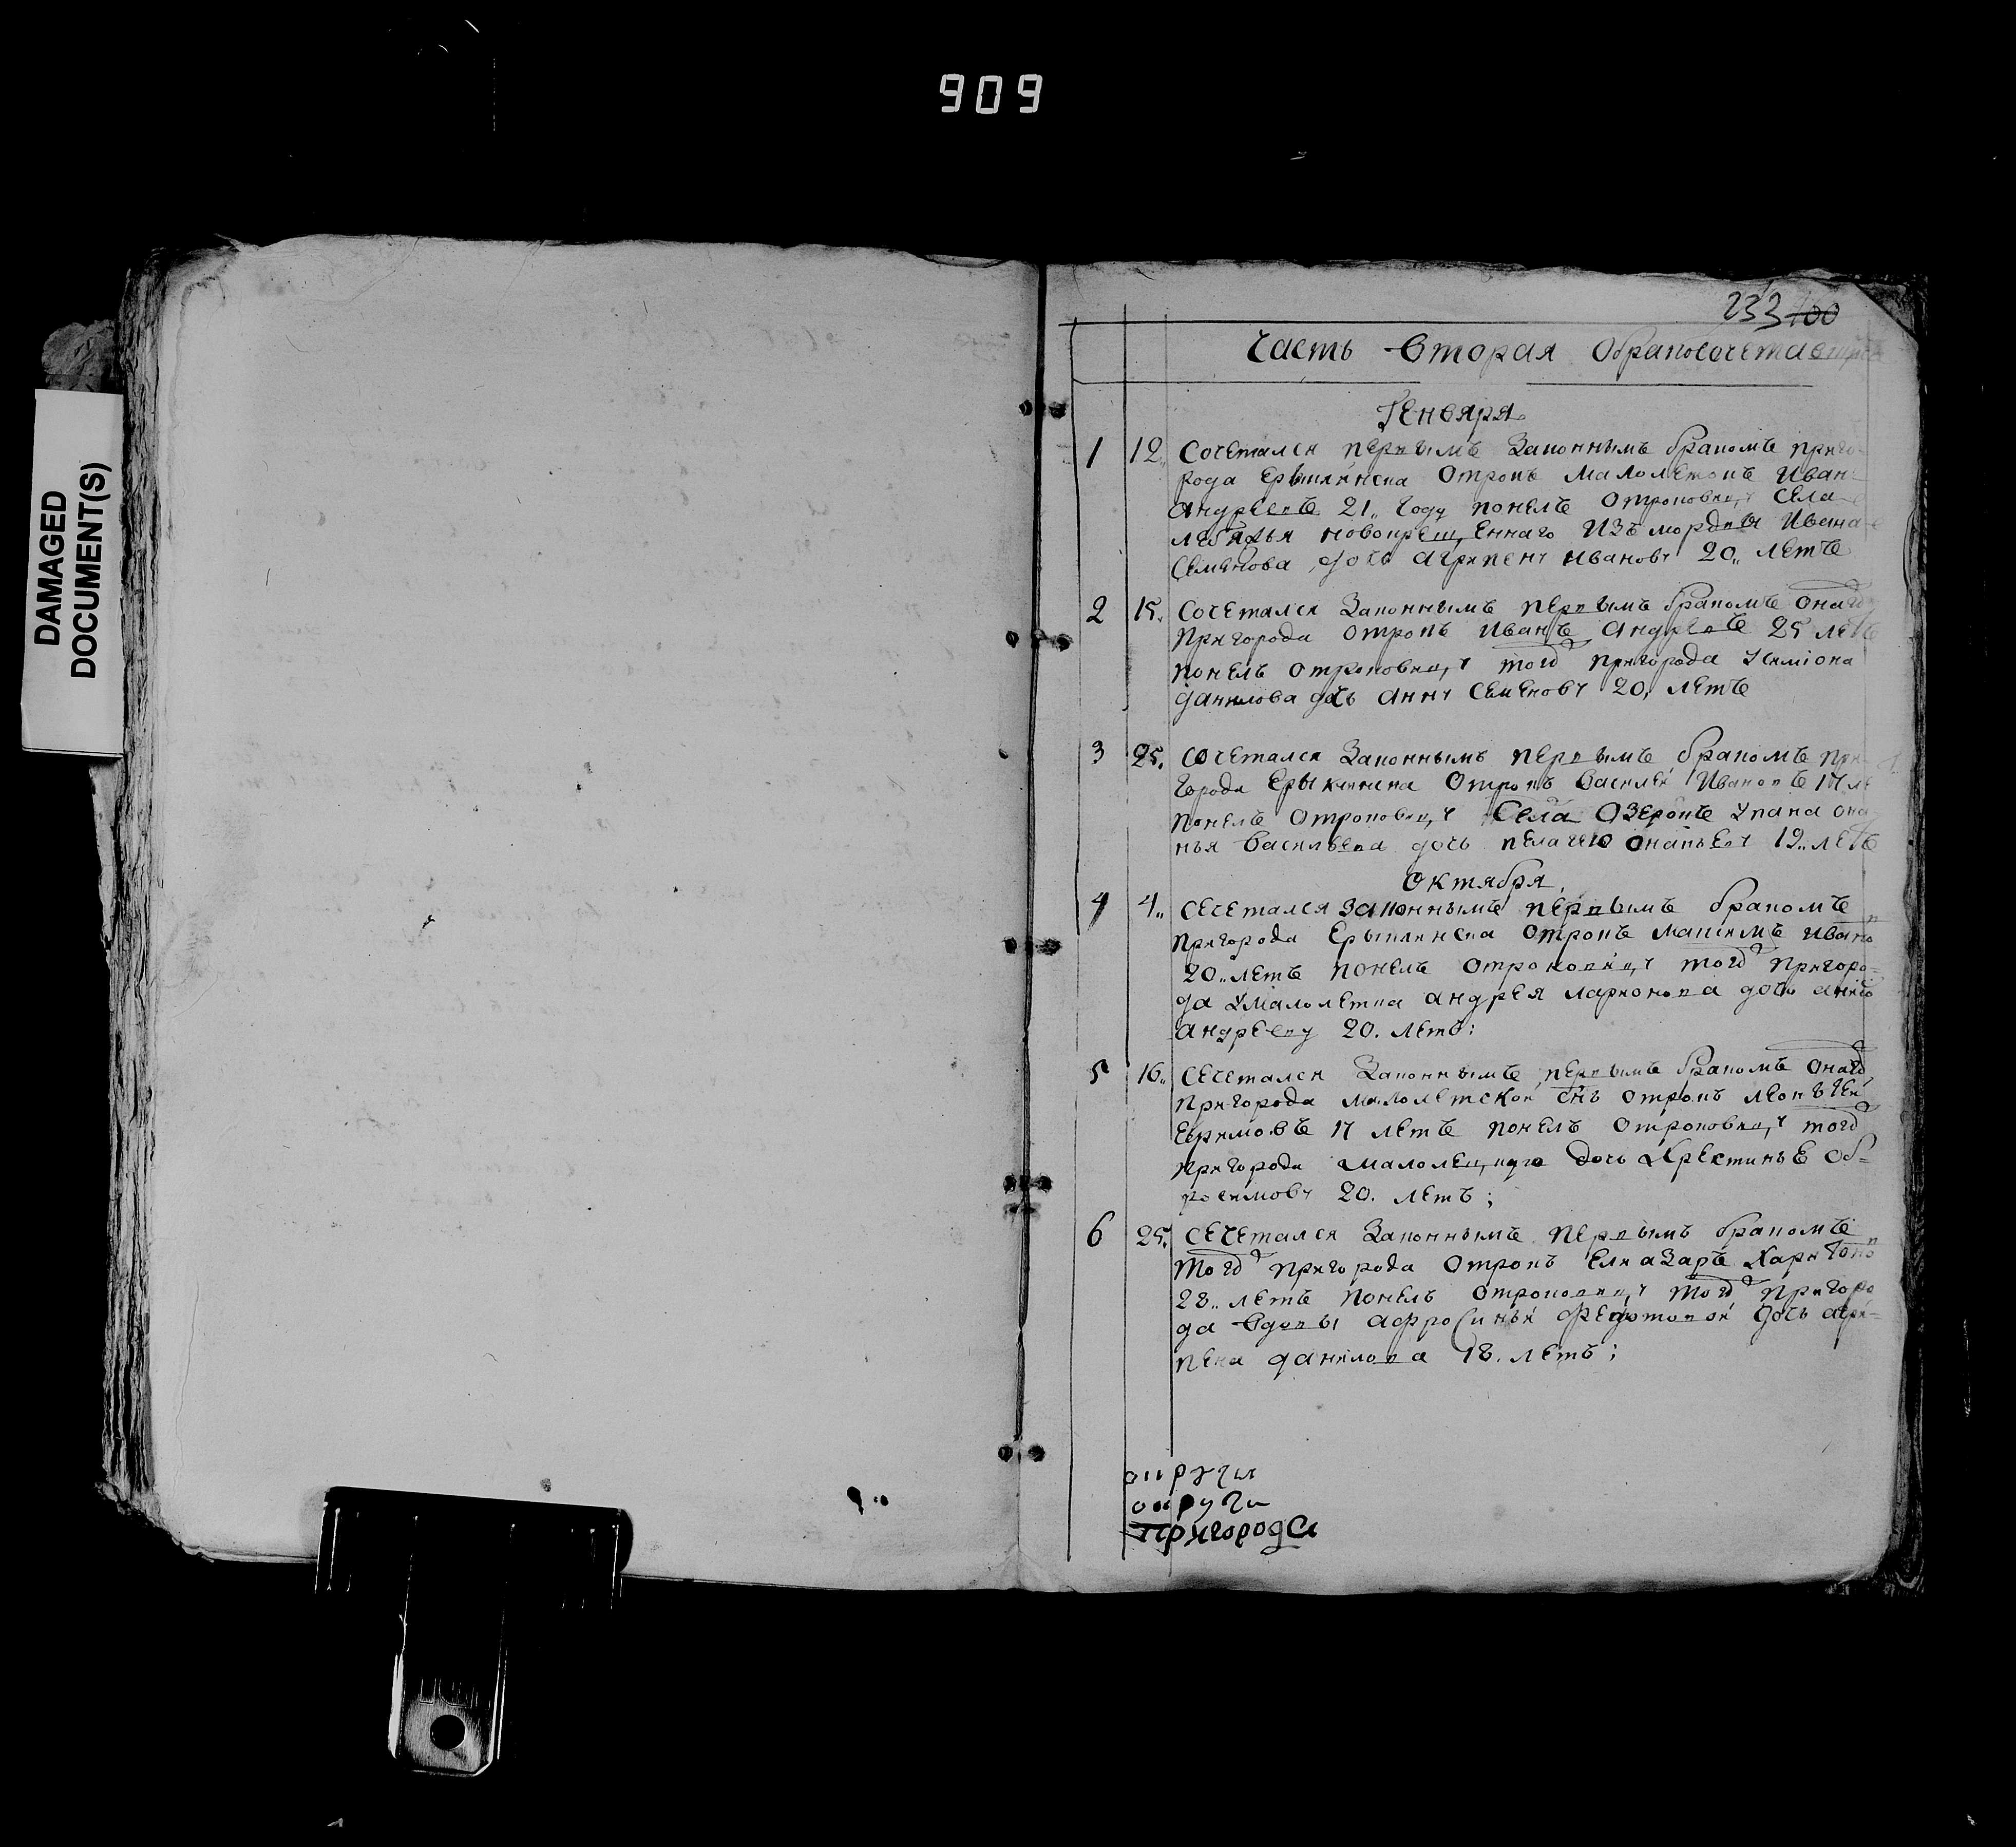 909
DAMAGED
DOCUMENT(S)
233 100
Часть вторая обракосочетавшихся
Генваря
1 12. Сочетался первымъ законнымъ бракомъ приго-
рода Ерыклинска отрокъ малолетокъ Иван
андреевъ 21. году понелъ отроковицу села
лебяжья новокрещеннаго изъ мордвы Ивана
Семенова дочь агрипену иванову 20. летъ
2 15. Сочетался законнымъ первымъ бракомъ онаго
пригорода отрокъ иванъ андреевъ 25 летъ
понелъ отроковицу того пригорода у симиона
данилова дочь анну семенову 20. летъ
3 25. сочетался законнымъ первымъ бракомъ при
города Ерыклинска отрокъ василеи Ивановъ 17 ле
понелъ отроковицу села озерокъ у пана она
нья васильева дочь пелагею онаньеву 19. летъ
октября
4 4. Сечетался законнымъ первымъ бракомъ
пригорода Ерыклинска отрокъ максимъ иванов
20. летъ понелъ отроковицу того пригоро-
да у малолетка андрея ларионова дочь анну
андрееву 20. летъ:
5 16. Сечетался законнымъ первымъ бракомъ онаго
пригорода малолетской снъ отрокъ леонътеи
Ефимовъ 17 летъ понелъ отроковицу того
пригорода дочь Хрестинье об-
росимову 20. летъ;
6 25. Сечетался законнымъ первымъ бракомъ
того пригорода отрокъ Елиазаръ Харитонов
28. летъ понелъ отроковицу того пригоро
да вдовы афросиньи федотовои дочь агри-
пена данилова 18. летъ;
округи
округи
пригорода